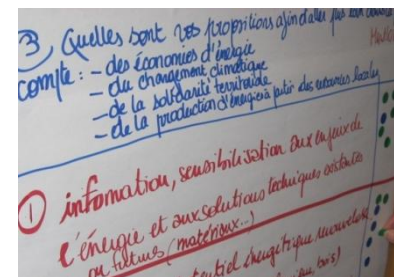 ③ Quelles sont vos propositions afin d'aller plus loin
compte : - des économies d'énergie
- du changement climatique
- de la solidarité territoriale
- de la production d'énergie à partir des ressources locales
① information, sensibilisation aux enjeux de
l'énergie et aux solutions techniques existantes
ou futures (matériaux...)
potentiel énergétique
bois)